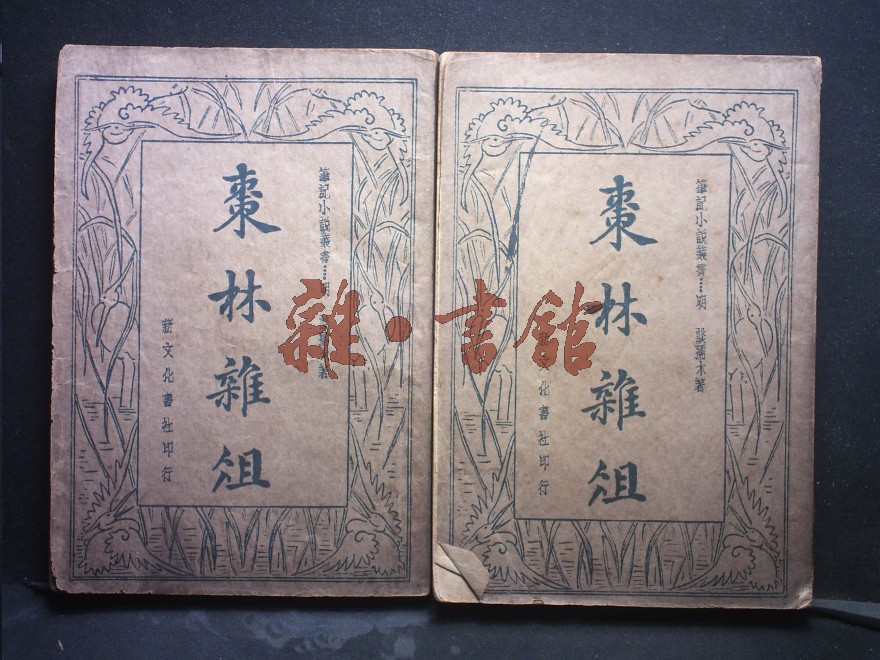 筆記小說叢書……明
著
棗林雜俎
新文化書社印行
筆記小說叢書……明 談孺木著
棗林雜俎
化書社印行
雜·書館